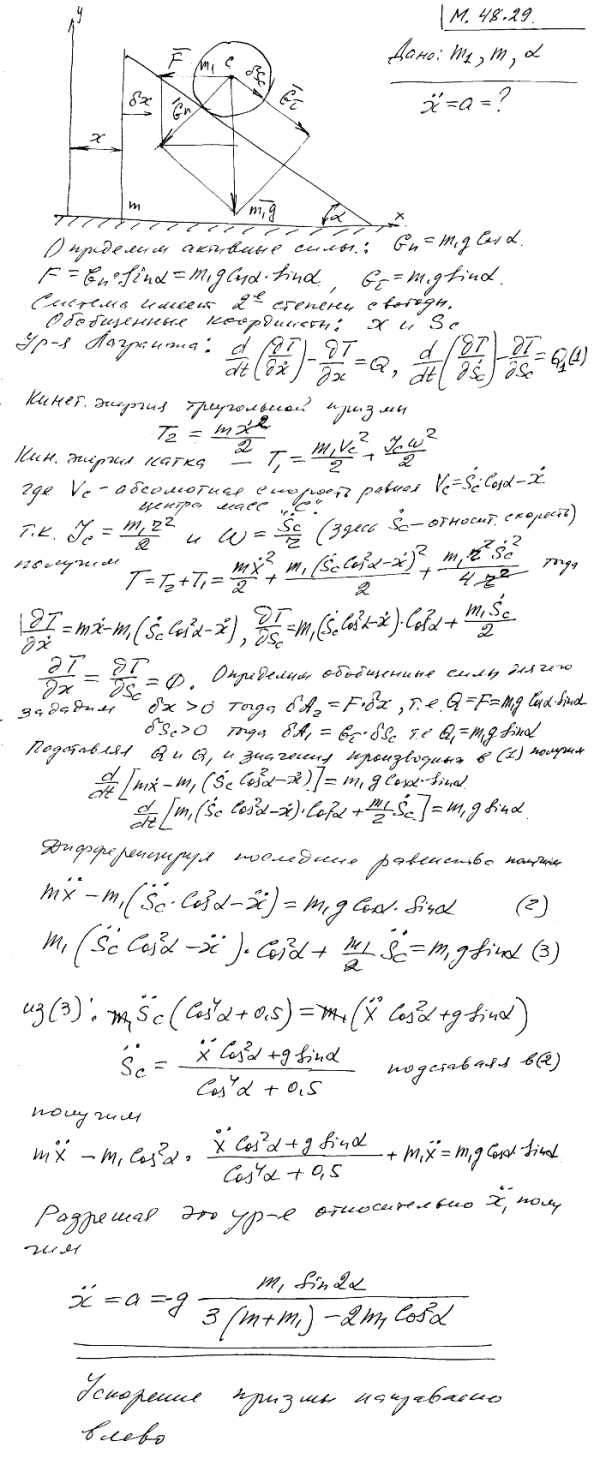 М. 48.29.
Дано: m₁, m, α
ẍ = a = ?
y
F̄
m₁ C
δS_C
Ḡ_τ
Ḡ_n
δx
x
m
m₁ḡ
α
x
Определим активные силы: G_n = m₁g Cosα.
F = G_n·Sinα = m₁g Cosα·Sinα, G_τ = m₁g Sinα.
Система имеет 2е степени свободы.
Обобщенные координаты: x и S_C
Ур-я Лагранжа: d/dt(∂T/∂ẋ) − ∂T/∂x = Q, d/dt(∂T/∂Ṡ_C) − ∂T/∂S_C = Q₁ (1)
Кинет. энергия треугольной призмы
T₂ = mẋ²/2
Кин. энергия катка — T₁ = m₁V_C²/2 + J_Cω²/2
где V_C – абсолютная скорость равная V_C = Ṡ_C Cosα − ẋ
центра масс "C"
т.к. J_C = m₁r²/2 и ω = Ṡ_C/r (здесь Ṡ_C – относит. скорость)
получим T = T₂ + T₁ = mẋ²/2 + m₁(Ṡ_C Cos²α − ẋ)²/2 + m₁r²Ṡ_C²/4r² тогда
∂T/∂ẋ = mẋ − m₁(Ṡ_C Cos²α − ẋ), ∂T/∂S_C = m₁(Ṡ_C Cos²α − ẋ)·Cos²α + m₁Ṡ_C/2
∂T/∂x = ∂T/∂S_C = 0. Определим обобщенные силы для чего
зададим δx > 0 тогда δA₂ = F·δx, т.е. Q = F = m₁g Cosα Sinα
δS_C > 0 тогда δA₁ = G_τ·δS_C т.е Q₁ = m₁g Sinα
Подставляя Q и Q₁ и значения производных в (1) получим
d/dt[mẋ − m₁(Ṡ_C Cos²α − ẋ)] = m₁g Cosα·Sinα
d/dt[m₁(Ṡ_C Cos²α − ẋ)·Cos²α + m₁/2 Ṡ_C] = m₁g Sinα.
Дифференцируя последние равенства получим
mẍ − m₁(S̈_C·Cos²α − ẍ) = m₁g Cosα·Sinα (2)
m₁(S̈_C Cos²α − ẍ)·Cos²α + m₁/2 S̈_C = m₁g Sinα (3)
из (3): m₁S̈_C(Cos⁴α + 0,5) = m₁(ẍ Cos²α + g Sinα)
S̈_C = (ẍ Cos²α + g Sinα)/(Cos⁴α + 0,5) подставляя в (2)
получим
mẍ − m₁Cos²α · (ẍ Cos²α + g Sinα)/(Cos⁴α + 0,5) + m₁ẍ = m₁g Cosα·Sinα
Разрешая это ур-е относительно ẍ, полу
чим
ẍ = a = −g m₁ Sin2α/(3(m + m₁) − 2m₁Cos²α)
Ускорение призмы направлено
влево